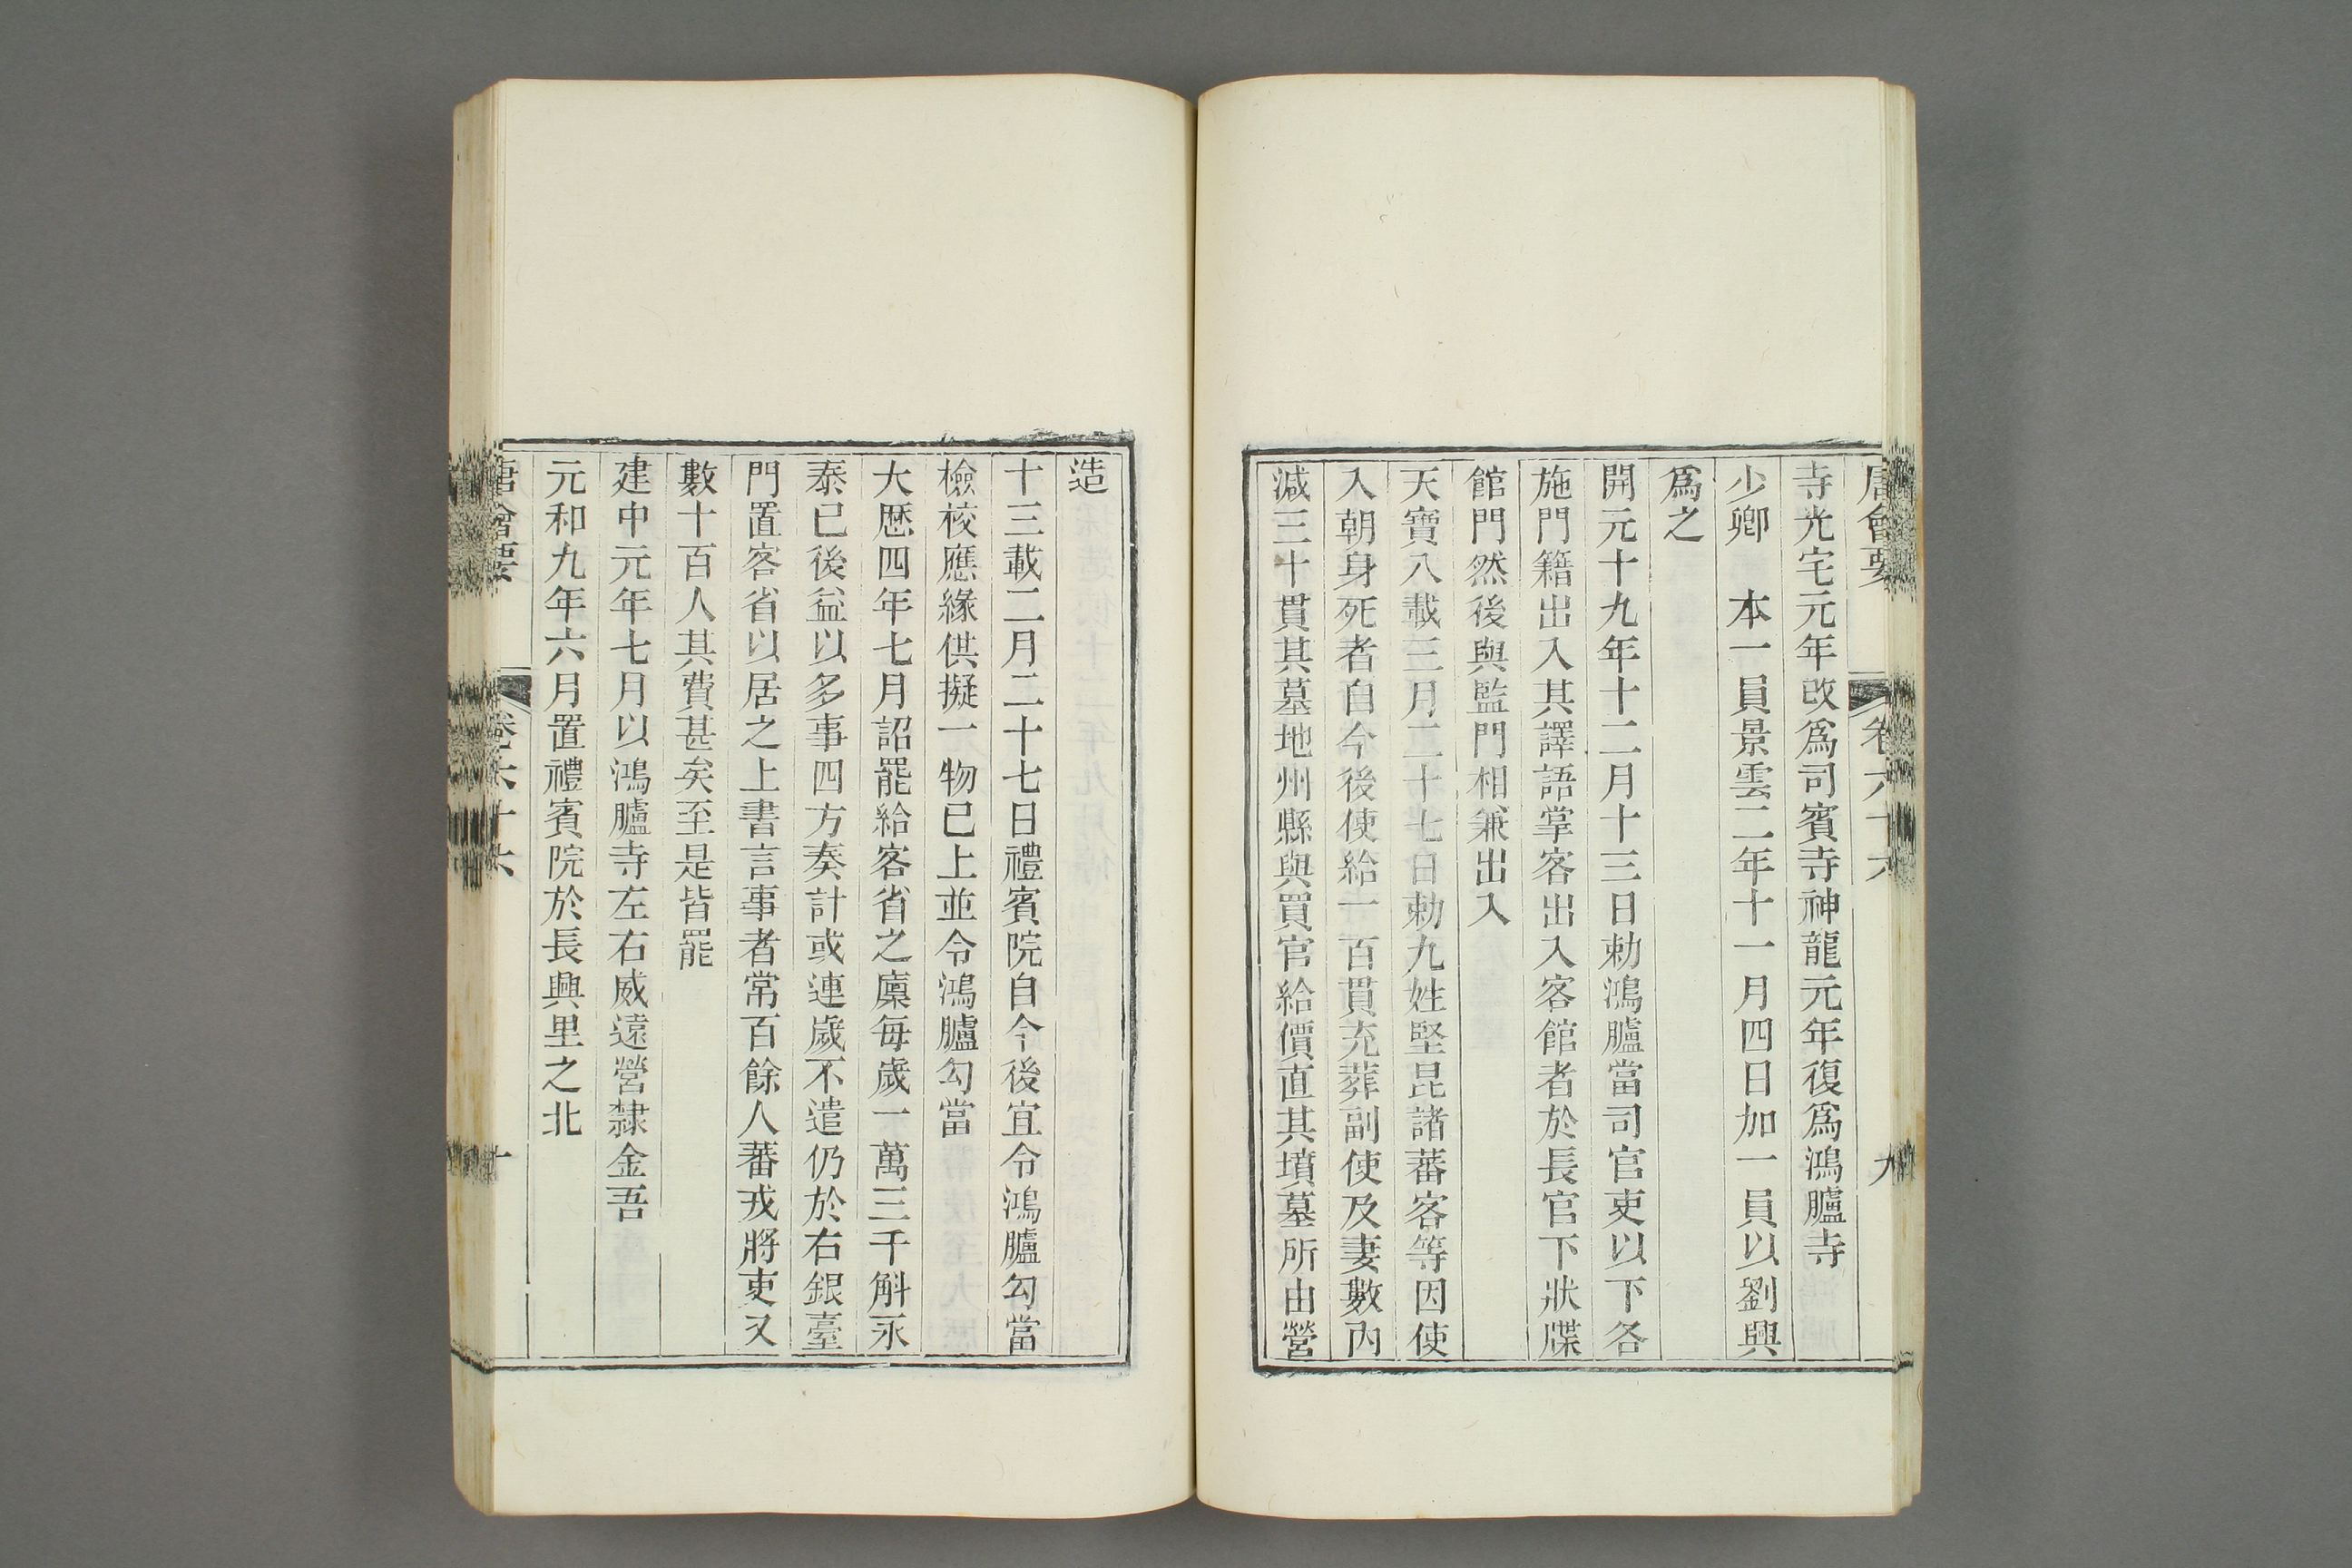 唐會要 卷六十六 九
寺光宅元年改爲司賓寺神龍元年復爲鴻臚寺
少卿 本一員景雲二年十一月四日加一員以劉興
爲之
開元十九年十二月十三日勅鴻臚當司官吏以下各
施門籍出入其譯語掌客出入客館者於長官下狀牒
館門然後與監門相兼出入
天寶八載三月二十七日勅九姓堅昆諸蕃客等因使
入朝身死者自今後使給一百貫充葬副使及妻數內
減三十貫其墓地州縣與買官給價直其墳墓所由營
造
十三載二月二十七日禮賓院自今後宜令鴻臚勾當
檢校應緣供擬一物已上並令鴻臚勾當
大厯四年七月詔罷給客省之廩每歲一萬三千斛永
泰已後益以多事四方奏計或連歲不遣仍於右銀臺
門置客省以居之上書言事者常百餘人蕃戎將吏又
數十百人其費甚矣至是皆罷
建中元年七月以鴻臚寺左右威遠營隸金吾
元和九年六月置禮賓院於長興里之北
唐會要 卷六十六 十